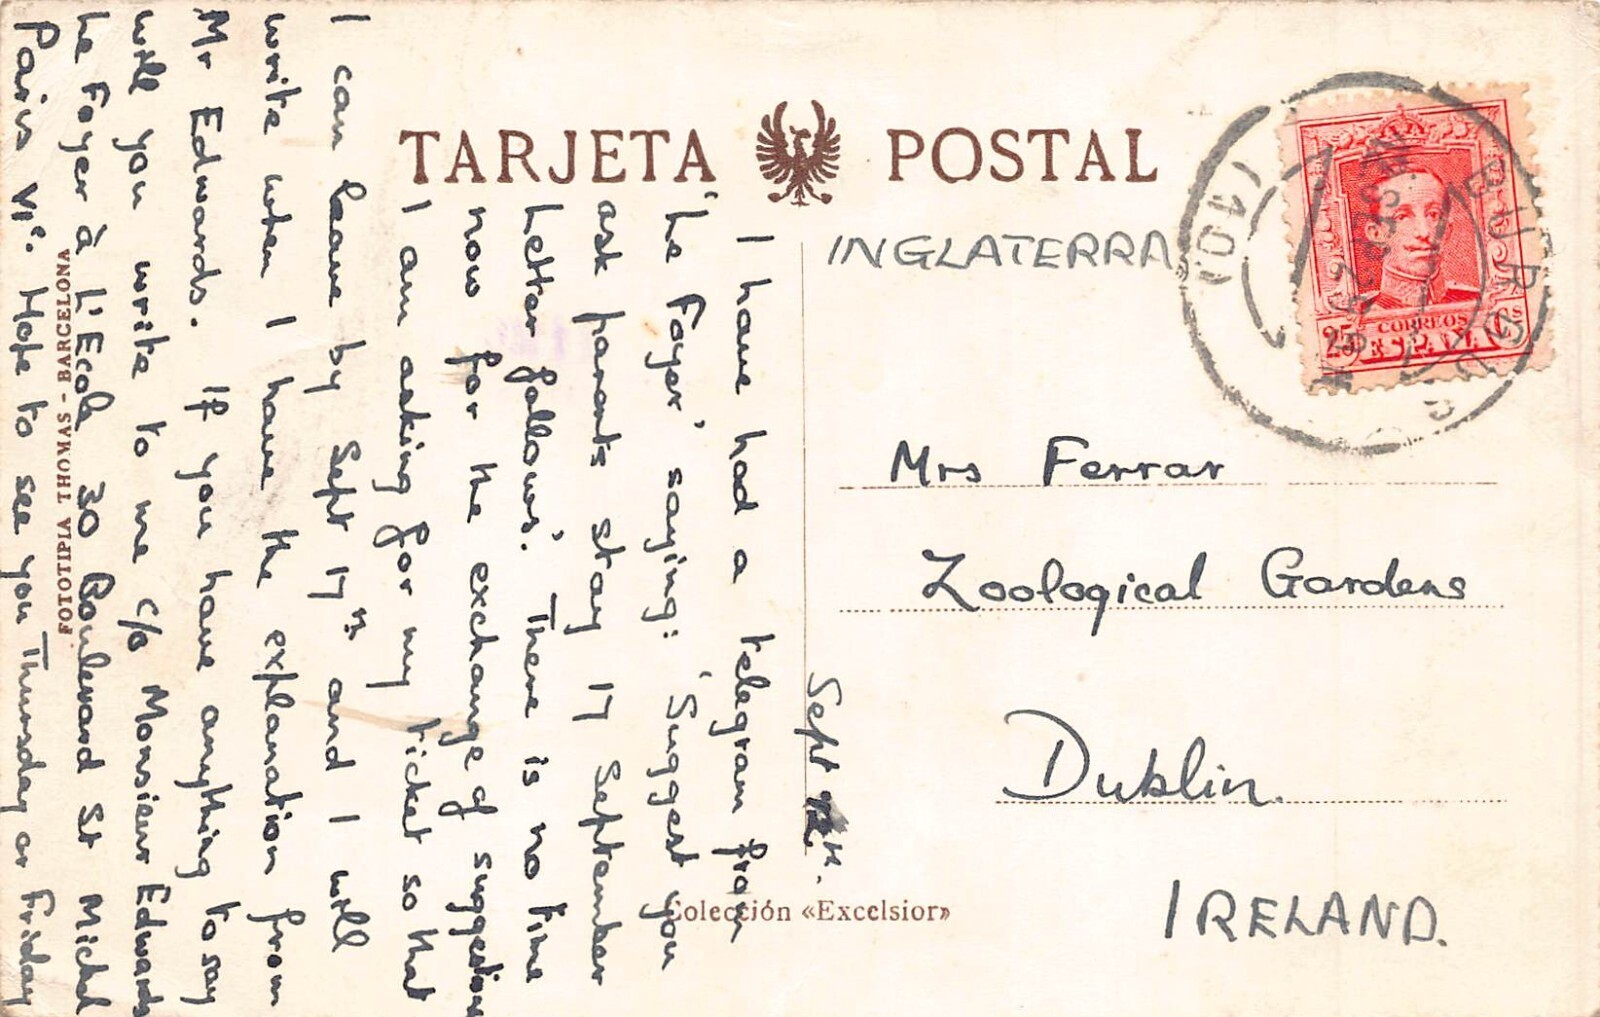 TARJETA POSTAL
INGLATERRA
BURGOS
25 CORREOS
ESPAÑA
Mrs Ferrar
Zoological Gardens
Dublin.
IRELAND.
Colección «Excelsior»
FOTOTIPIA THOMAS - BARCELONA
Sept
I have had a telegram from
'Le Foyer', saying: 'Suggest you
ask parents stay 17 September
Letter follows'. There is no time
now for the exchange of suggestion
I am asking for my ticket so that
I can leave by Sept 17th and I will
write when I have the explanation from
Mr Edwards. If you have anything to say
will you write to me c/o Monsieur Edwards
Le Foyer à L'Ecole 30 Boulevard St Michel
Paris VIe. Hope to see you Thursday or Friday